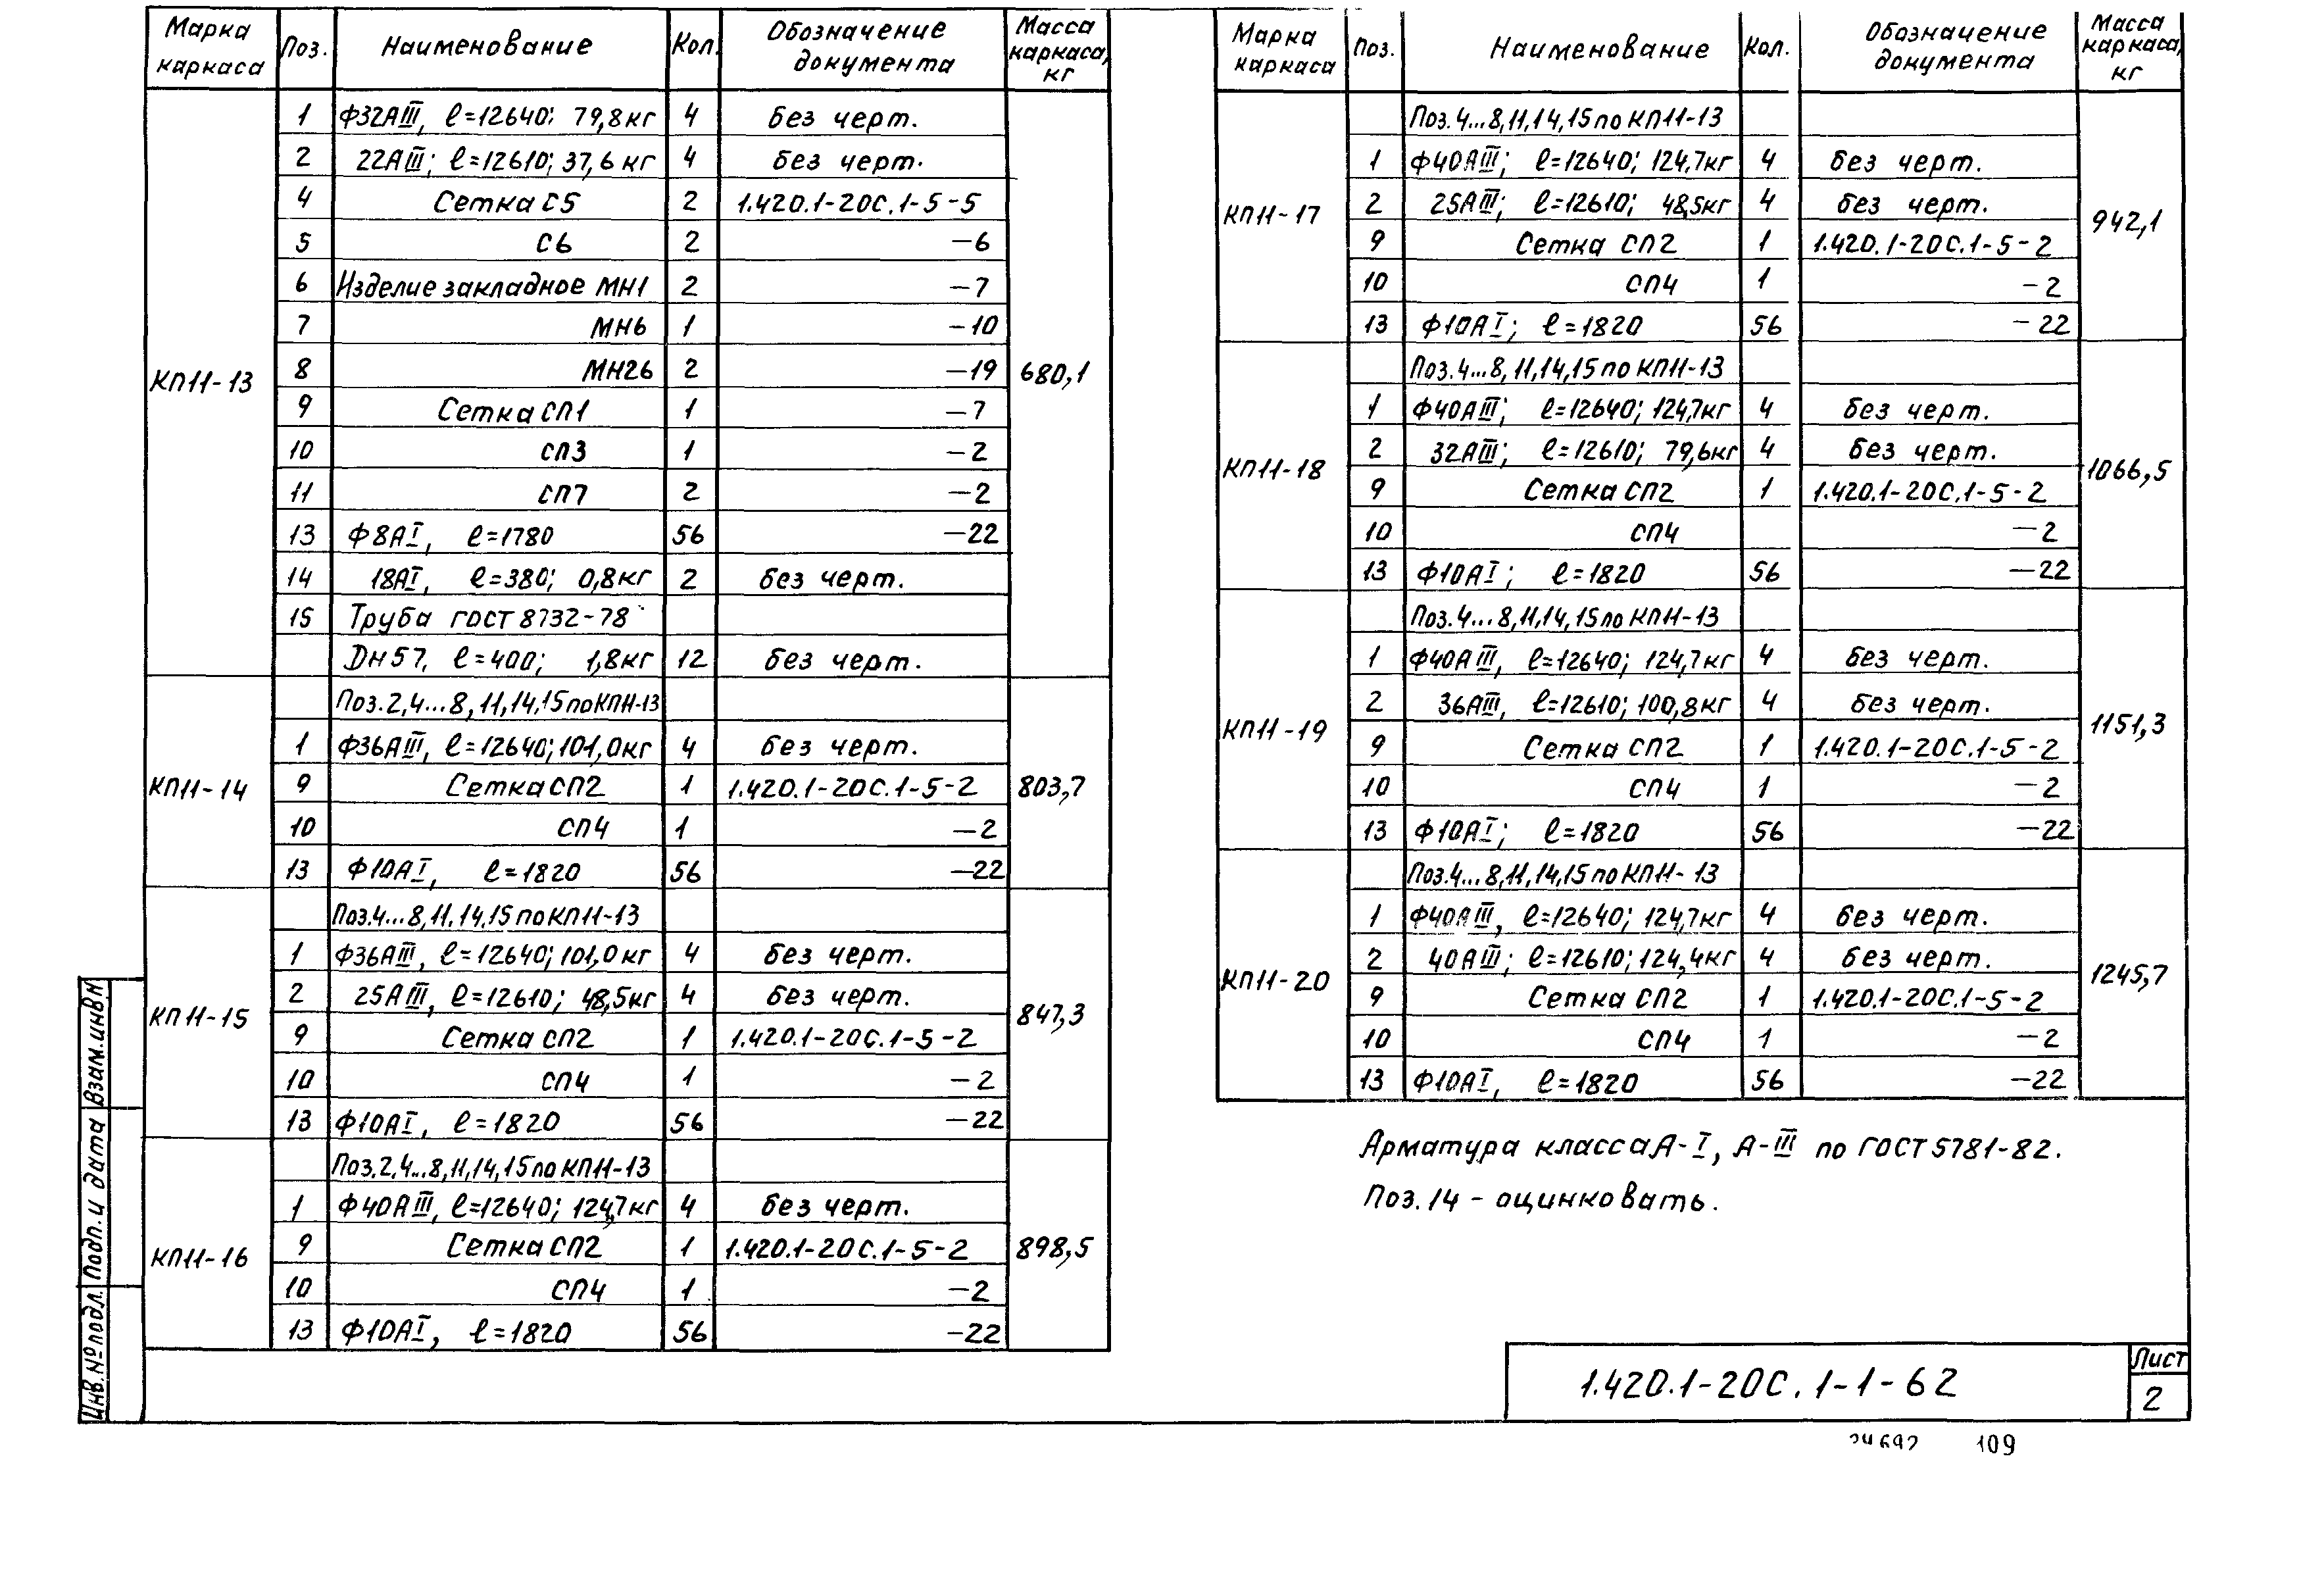 Марка каркаса | Поз. | Наименование | Кол. | Обозначение документа | Масса каркаса, кг
КП11-13 | 1 | Ф32АIII, ℓ=12640; 79,8кг | 4 | без черт. | 680,1
2 | 22АIII; ℓ=12610; 37,6кг | 4 | без черт.
4 | Сетка С5 | 2 | 1.420.1-20С.1-5-5
5 | С6 | 2 | -6
6 | Изделие закладное МН1 | 2 | -7
7 | МН6 | 1 | -10
8 | МН26 | 2 | -19
9 | Сетка СП1 | 1 | -7
10 | СП3 | 1 | -2
11 | СП7 | 2 | -2
13 | Ф8АI, ℓ=1780 | 56 | -22
14 | 18АI, ℓ=380; 0,8кг | 2 | без черт.
15 | Труба ГОСТ 8732-78
Dн57, ℓ=400; 1,8кг | 12 | без черт.
КП11-14 | Поз.2,4...8,11,14,15 по КП11-13 | 803,7
1 | Ф36АIII, ℓ=12640; 101,0кг | 4 | без черт.
9 | Сетка СП2 | 1 | 1.420.1-20С.1-5-2
10 | СП4 | 1 | -2
13 | Ф10АI, ℓ=1820 | 56 | -22
КП11-15 | Поз.4...8,11,14,15 по КП11-13 | 847,3
1 | Ф36АIII, ℓ=12640; 101,0кг | 4 | без черт.
2 | 25АIII, ℓ=12610; 48,5кг | 4 | без черт.
9 | Сетка СП2 | 1 | 1.420.1-20С.1-5-2
10 | СП4 | 1 | -2
13 | Ф10АI, ℓ=1820 | 56 | -22
КП11-16 | Поз.2,4...8,11,14,15 по КП11-13 | 898,5
1 | Ф40АIII, ℓ=12640; 124,7кг | 4 | без черт.
9 | Сетка СП2 | 1 | 1.420.1-20С.1-5-2
10 | СП4 | 1 | -2
13 | Ф10АI, ℓ=1820 | 56 | -22
Марка каркаса | Поз. | Наименование | Кол. | Обозначение документа | Масса каркаса, кг
КП11-17 | Поз.4...8,11,14,15 по КП11-13 | 942,1
1 | Ф40АIII; ℓ=12640; 124,7кг | 4 | без черт.
2 | 25АIII; ℓ=12610; 48,5кг | 4 | без черт.
9 | Сетка СП2 | 1 | 1.420.1-20С.1-5-2
10 | СП4 | 1 | -2
13 | Ф10АI; ℓ=1820 | 56 | -22
КП11-18 | Поз.4...8,11,14,15 по КП11-13 | 1066,5
1 | Ф40АIII; ℓ=12640; 124,7кг | 4 | без черт.
2 | 32АIII; ℓ=12610; 79,6кг | 4 | без черт.
9 | Сетка СП2 | 1 | 1.420.1-20С.1-5-2
10 | СП4 | -2
13 | Ф10АI; ℓ=1820 | 56 | -22
КП11-19 | Поз.4...8,11,14,15 по КП11-13 | 1151,3
1 | Ф40АIII, ℓ=12640; 124,7кг | 4 | без черт.
2 | 36АIII, ℓ=12610; 100,8кг | 4 | без черт.
9 | Сетка СП2 | 1 | 1.420.1-20С.1-5-2
10 | СП4 | 1 | -2
13 | Ф10АI; ℓ=1820 | 56 | -22
КП11-20 | Поз.4...8,11,14,15 по КП11-13 | 1245,7
1 | Ф40АIII, ℓ=12640; 124,7кг | 4 | без черт.
2 | 40АIII; ℓ=12610; 124,4кг | 4 | без черт.
9 | Сетка СП2 | 1 | 1.420.1-20С.1-5-2
10 | СП4 | 1 | -2
13 | Ф10АI, ℓ=1820 | 56 | -22
Арматура класса А-I, А-III по ГОСТ 5781-82.
Поз. 14 - оцинковать.
Инв.№подл. | Подп. и дата | Взам.инв№
1.420.1-20С.1-1-62
Лист
2
24692 109